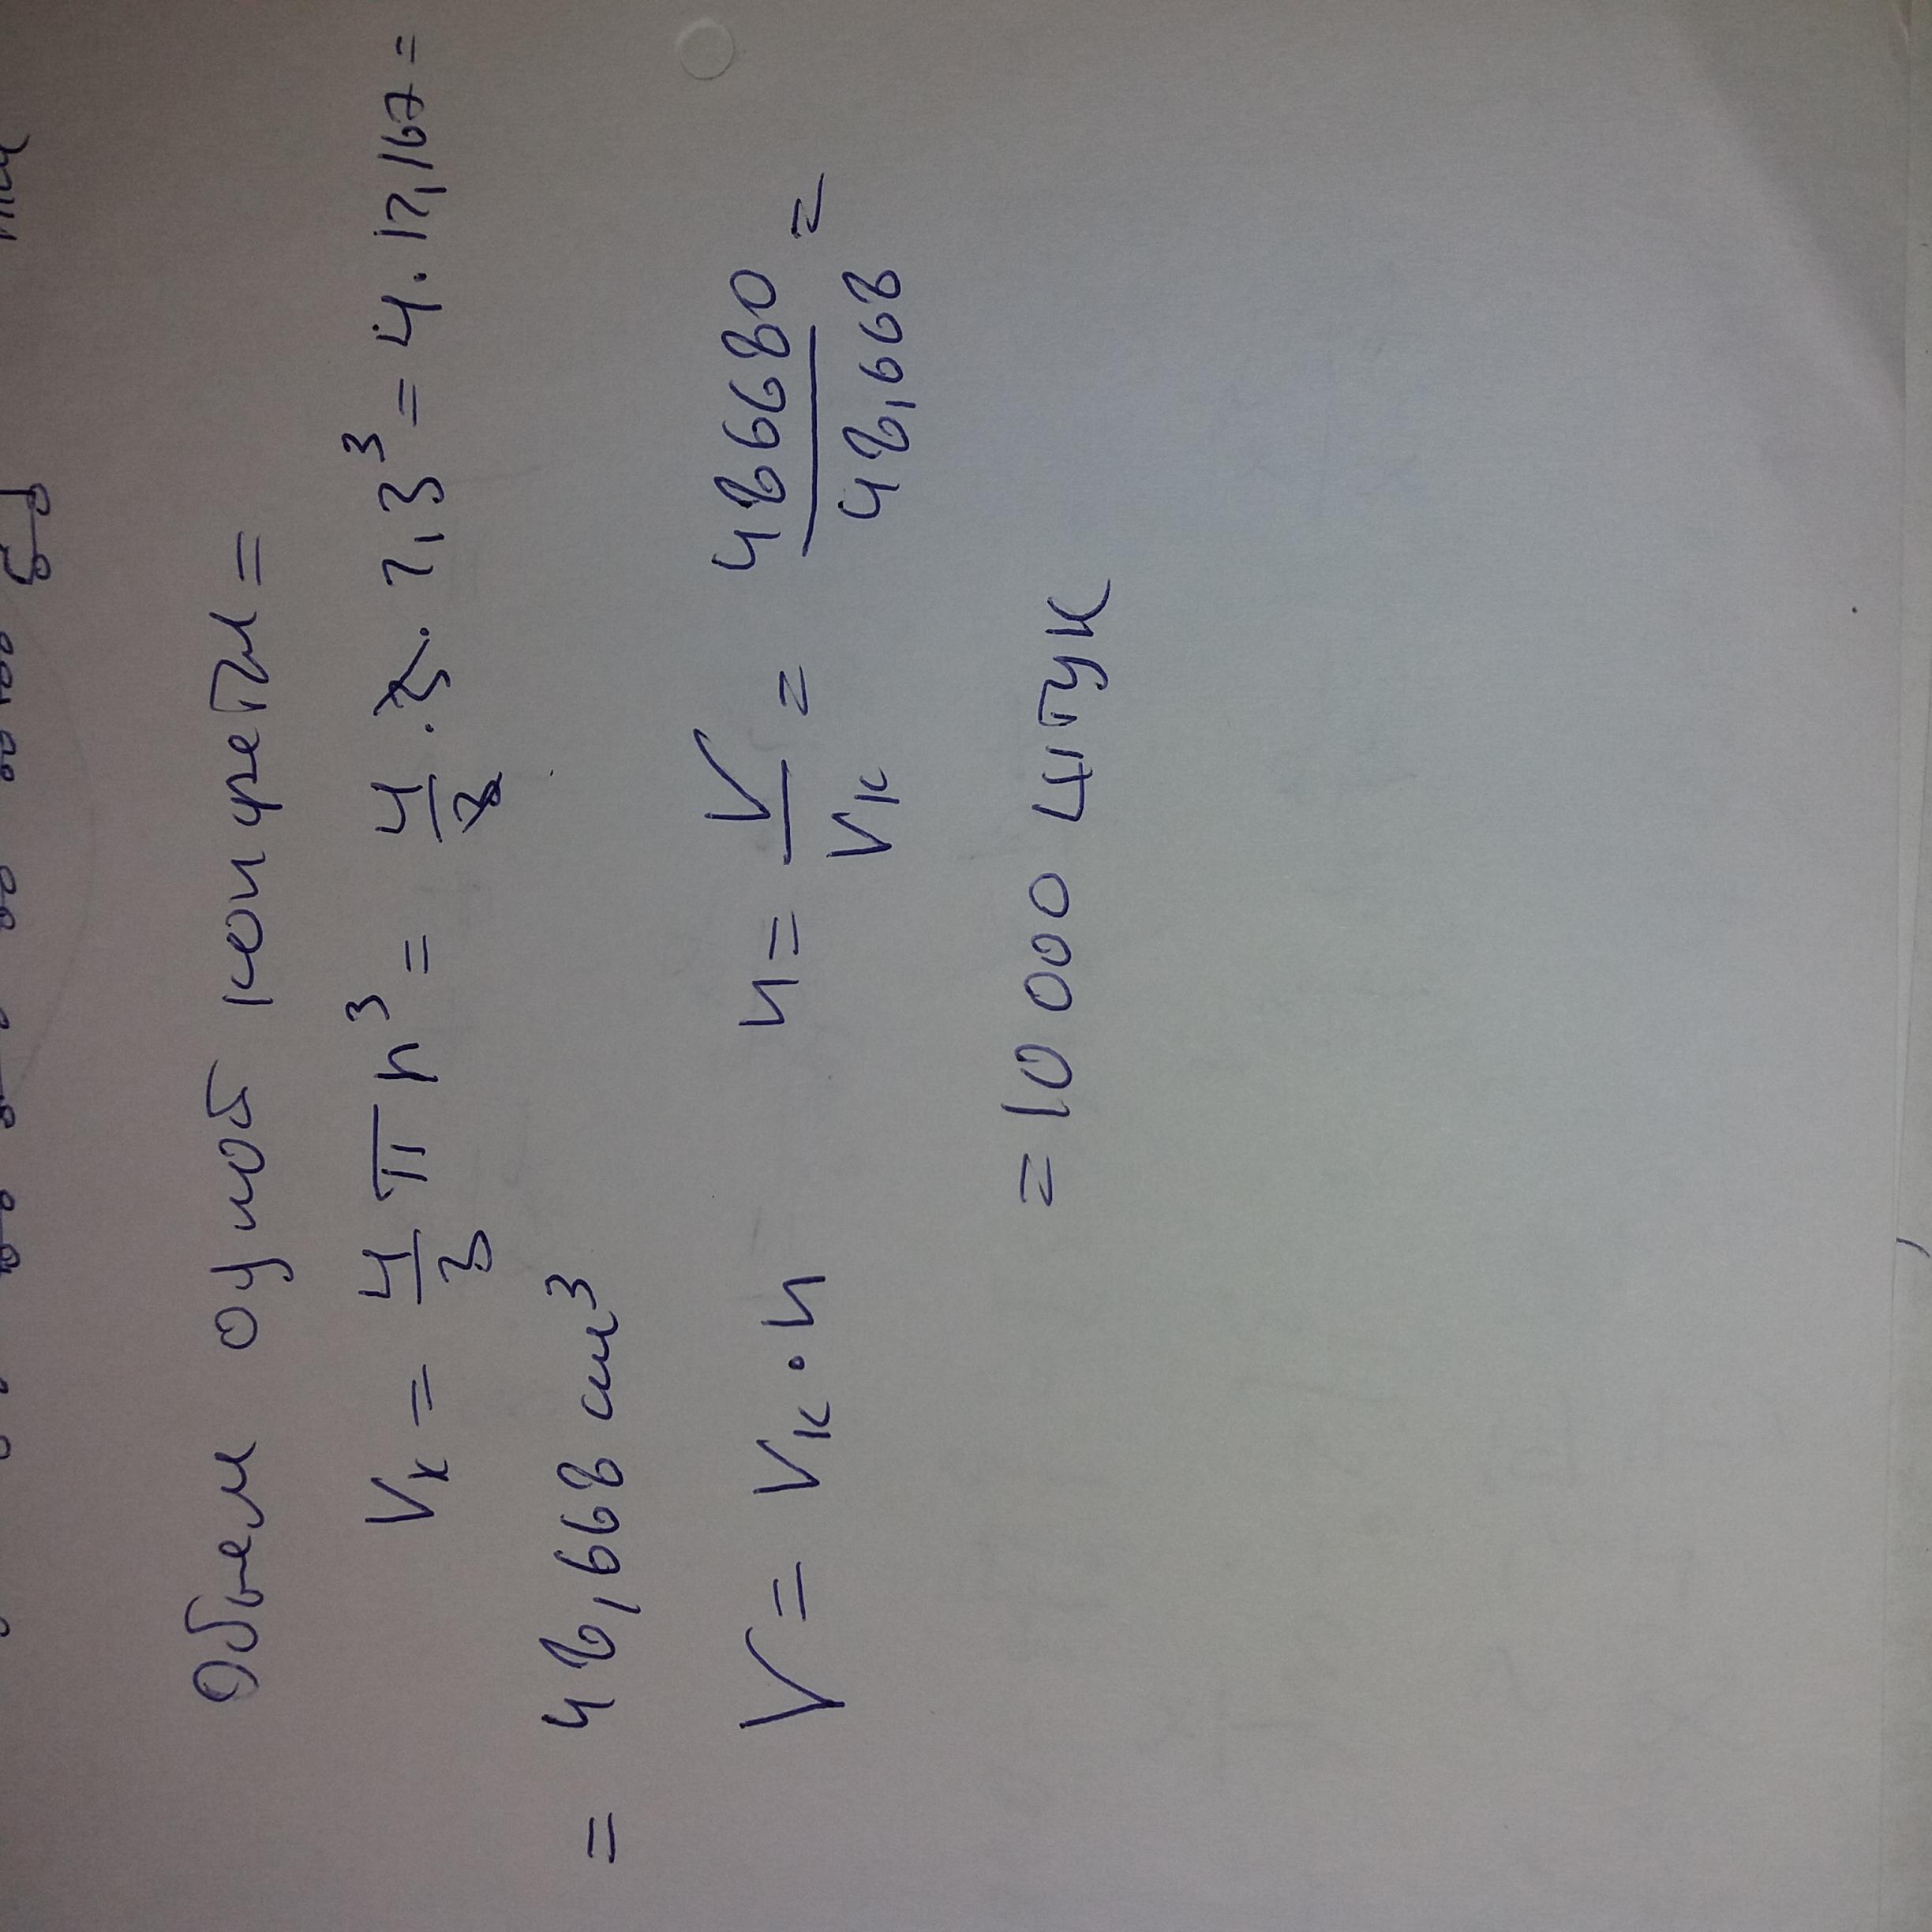 Объем одной конфеты =
Vк = 4/3 π r³ = 4/3 · 3 · 2,3³ = 4 · 12,167 =
= 48,668 см³
V = Vк · n n = V/Vк = 486680/48,668 =
= 10 000 штук